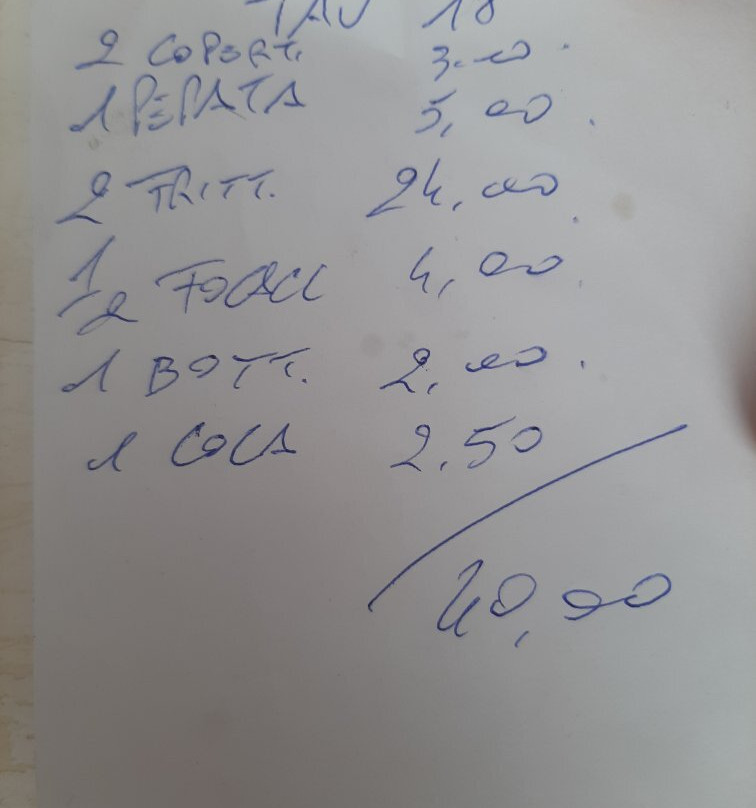 TAV 18
2 COPERT. 3.00
1 PEPATA 5,00
2 FRITT. 24,00
1/2 FOCACC 4,00
1 BOTT. 2,00
1 COCA 2,50
40,00